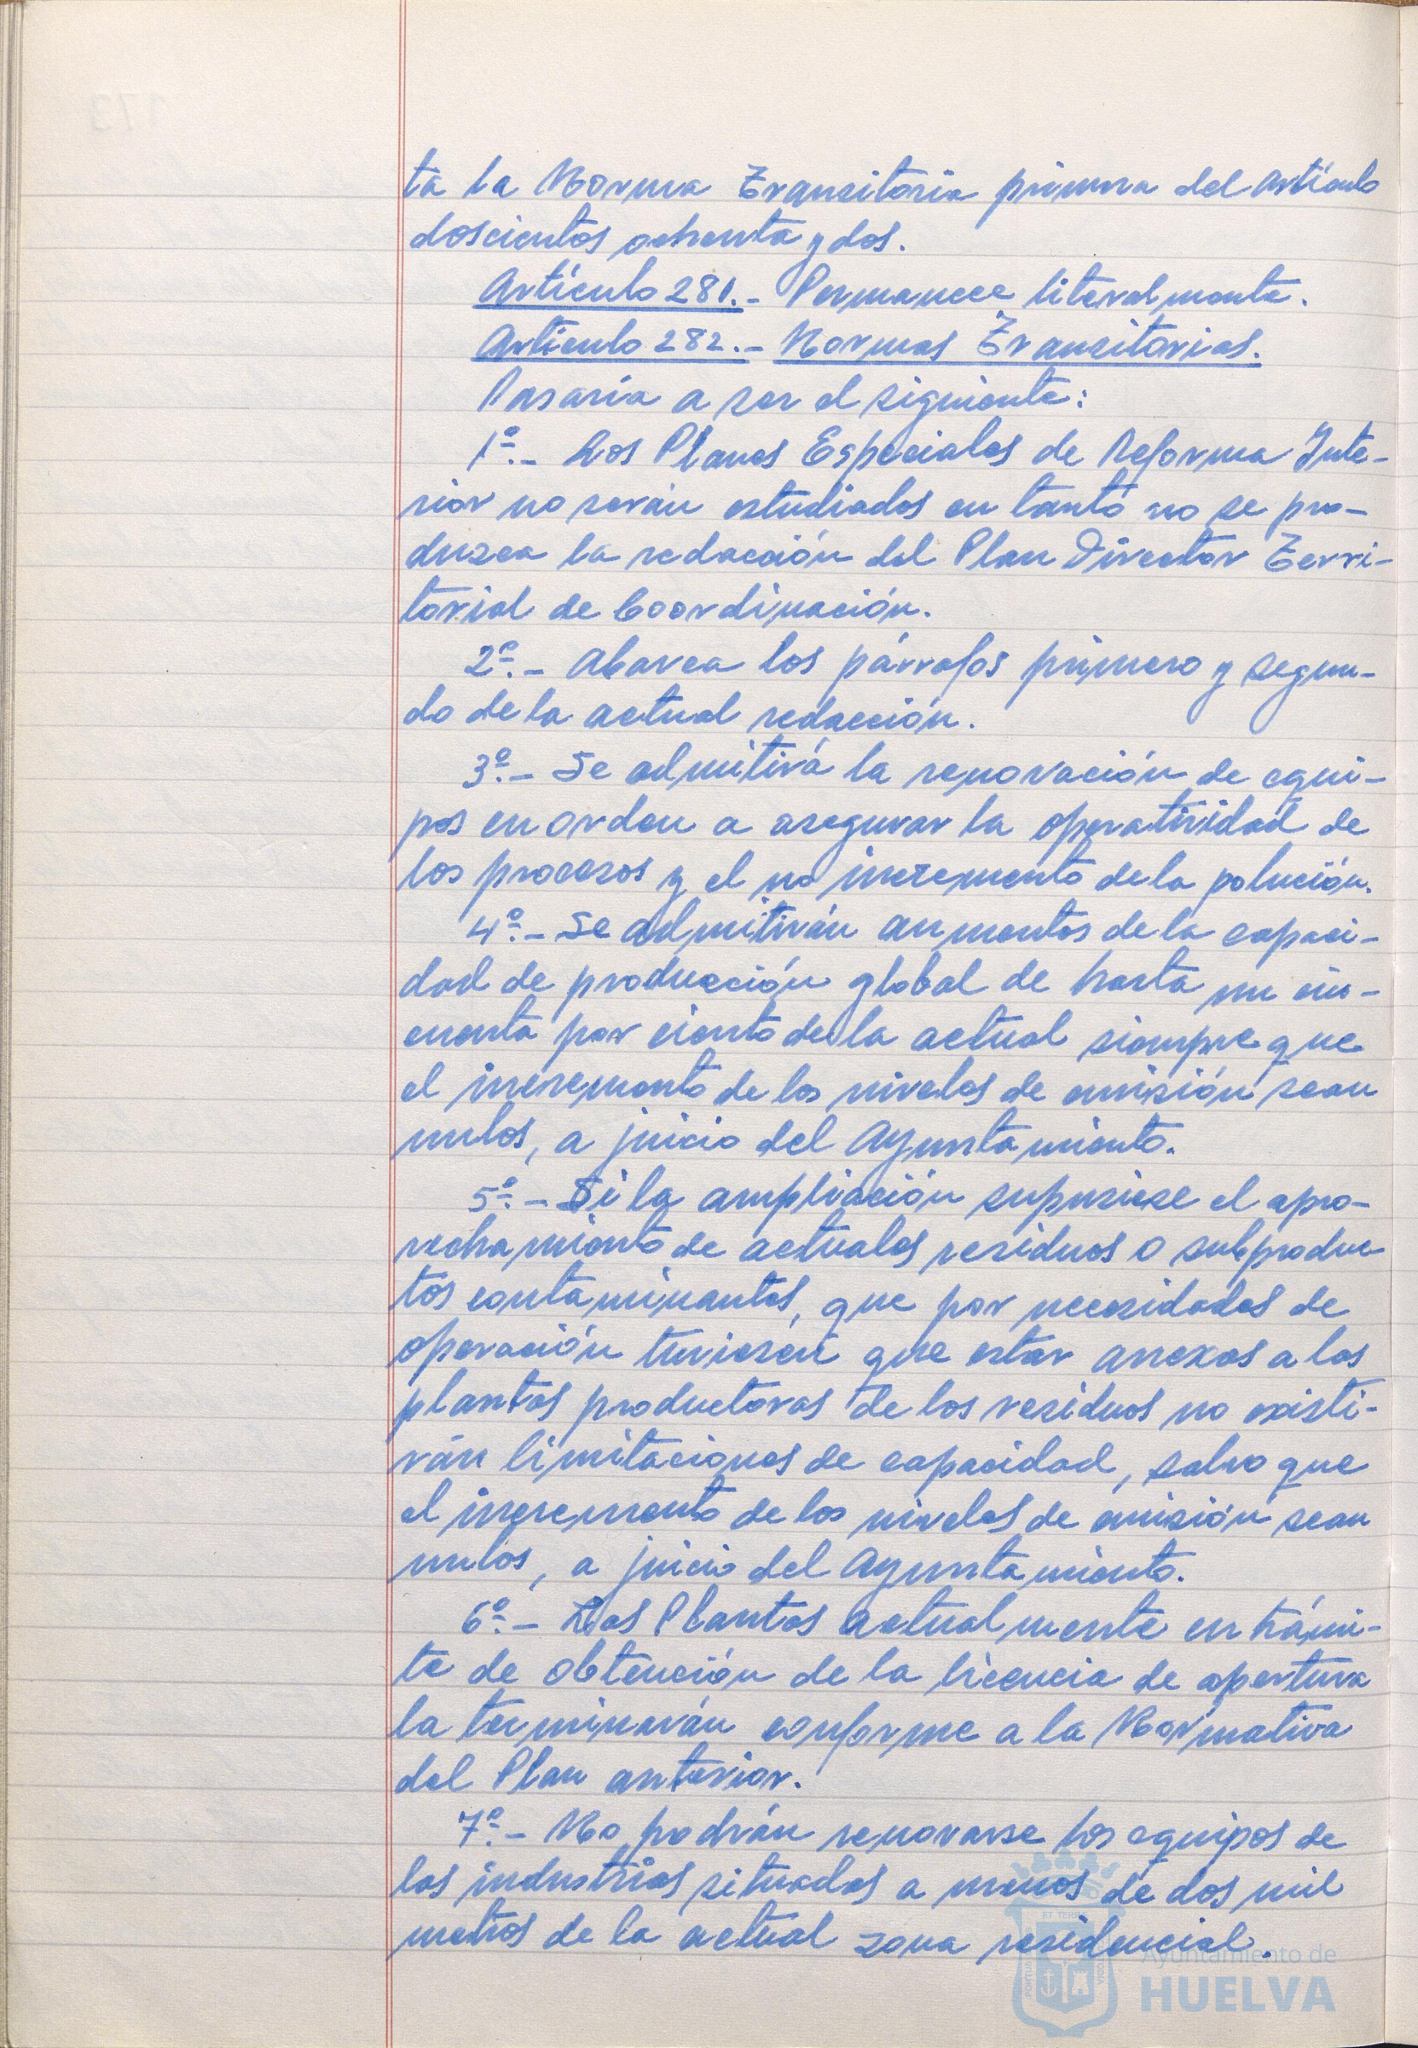 ta la Norma Transitoria primera del artículo
doscientos ochenta y dos.
Artículo 281.- Permanece literalmente.
Artículo 282.- Normas Transitorias.
Pasaría a ser el siguiente:
1º.- Los Planes Especiales de Reforma Inte-
rior no serán estudiados en tanto no se pro-
duzca la redacción del Plan Director Terri-
torial de Coordinación.
2º.- Abarca los párrafos primero y segun-
do de la actual redacción.
3º.- Se admitirá la renovación de equi-
pos en orden a asegurar la operatividad de
los procesos y el no incremento de la polución.
4º.- Se admitirán aumentos de la capaci-
dad de producción global de hasta un cin-
cuenta por ciento de la actual siempre que
el incremento de los niveles de emisión sean
nulos, a juicio del Ayuntamiento.
5º.- Si la ampliación supusiese el apro-
vechamiento de actuales residuos o subproduc
tos contaminantes, que por necesidades de
operación tuviesen que estar anexas a las
plantas productoras de los residuos no existi-
rán limitaciones de capacidad, salvo que
el incremento de los niveles de emisión sean
nulos, a juicio del Ayuntamiento.
6º.- Las Plantas actualmente en trámi-
te de obtención de la licencia de apertura
la terminarán conforme a la Normativa
del Plan anterior.
7º.- No podrán renovarse los equipos de
las industrias situadas a menos de dos mil
metros de la actual zona residencial.
Ayuntamiento de
HUELVA